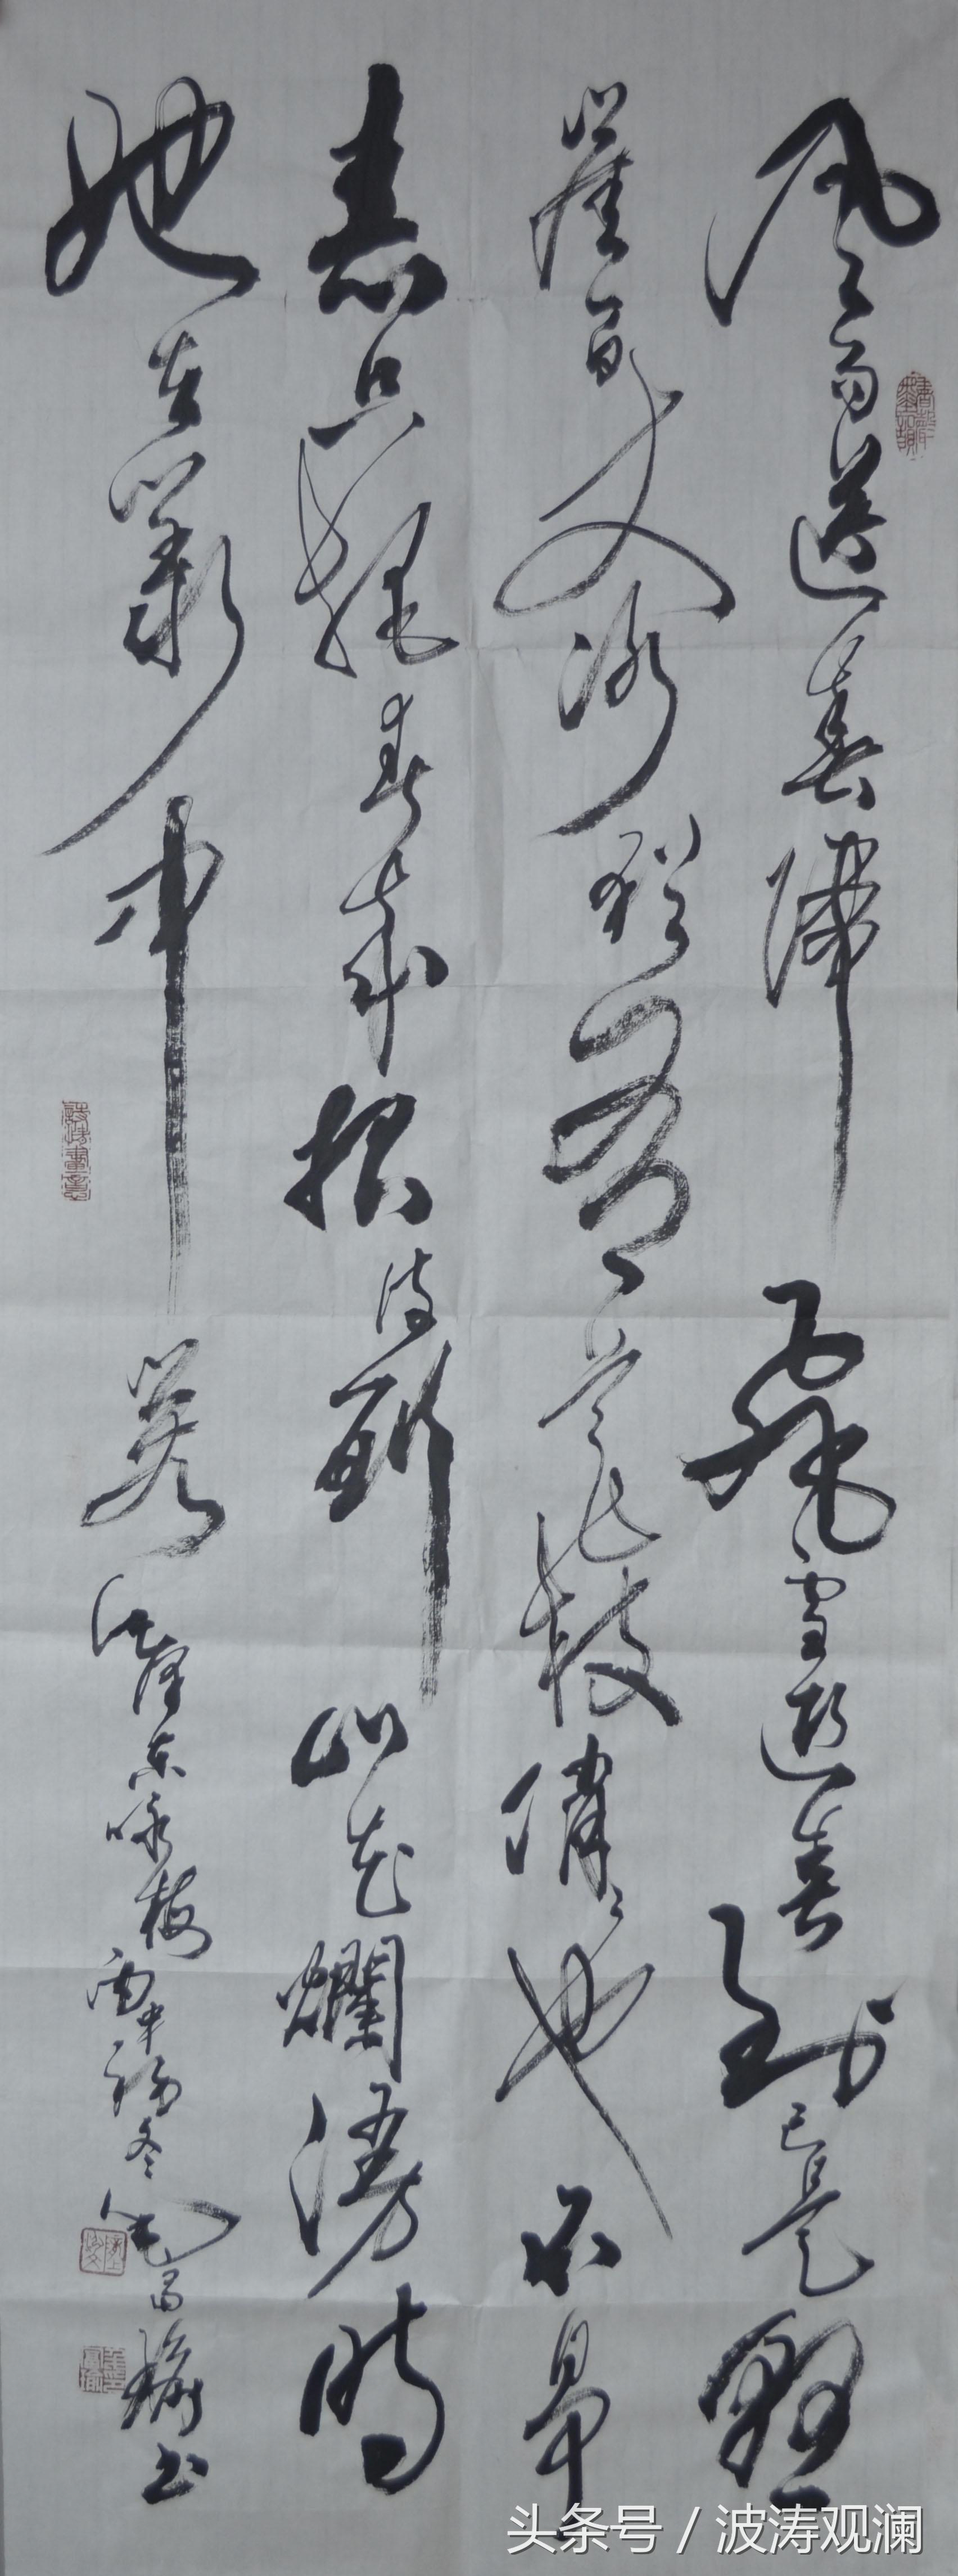 风雨送春归飞雪迎春到已是悬
崖百丈冰犹有花枝俏俏也不争
春只把春来报待到山花烂漫时
她在丛中笑
泽东咏梅丙申初冬书
头条号 / 波涛观澜